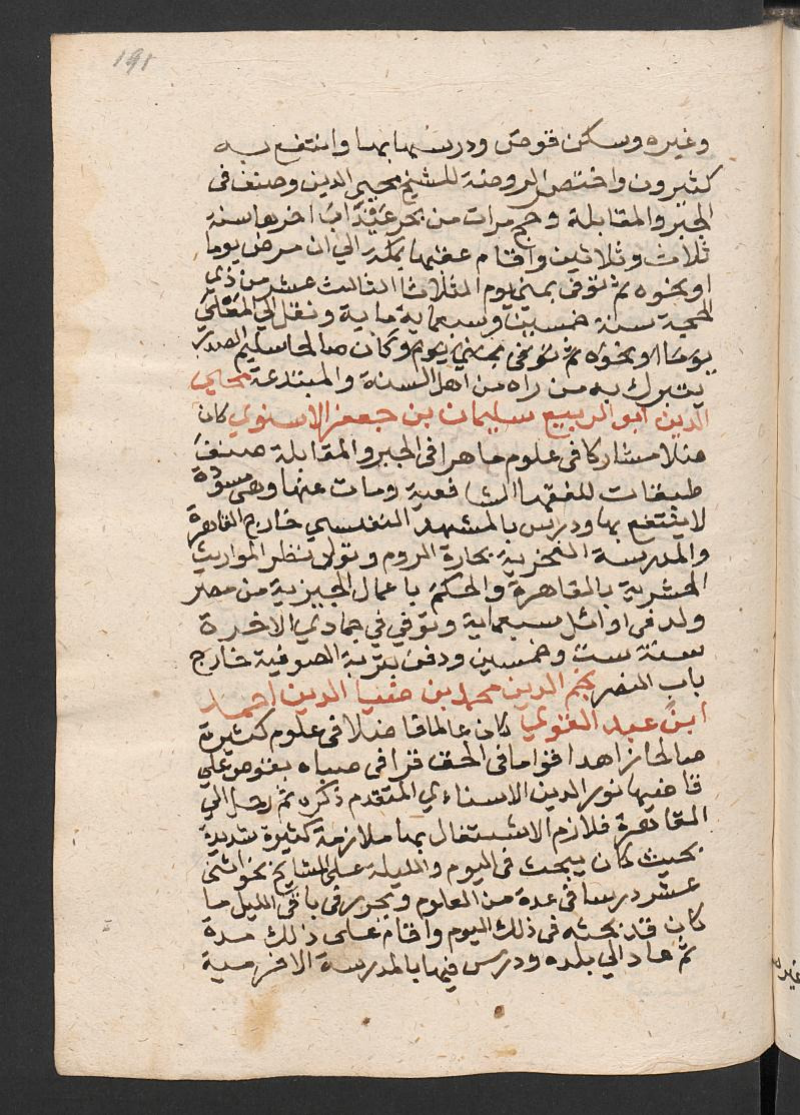 191
وغيره وسكن قوص ودرس بها وانتفع به
كثيرون واختصر الروضة للشيخ محيي الدين وصنف في
الجبر والمقابلة وحج مرات من بحر عيذاب اخرها سنة
ثلاث وثلاثين واقام عقبها بمكة الي ان مرض يوما
او نحوه ثم توفى بمنى يوم الثلاثا الثالث عشر من ذي
الحجة سنة خمسين وسبماية ماية ونقل الي المعلى
يوما او نحوه ثم توفى بمنى يوم وكان صالحا سليم الصدر
يتبرك به من راه من اهل السنة والمبتدعة محيي
الدين ابو الربيع سليمان بن جعفر الاسنوي كان
فاضلا مشاركا في علوم ماهرا في الجبر والمقابلة صنف
طبقات للفقها الشافعية ومات عنها وهي مسودة
لا ينتفع بها ودرس بالمشهد النفيسي خارج القاهرة
والمدرسة الفخرية بحارة الروم وتولى نظر المواريث
الحشرية بالقاهرة والحكم باعمال الجيزية من مصر
ولد في اوائل سبعماية وتوفي في جمادي الاخرة
سنة ست وخمسين ودفن بتربة الصوفية خارج
باب النصر نجم الدين محمد بن ضيا الدين احمد
ابن عبد القوي كان عالما فاضلا في علوم كثيرة
صالحا زاهدا قواما في الحق قرا في صباه بقوص علي
قاضيها نور الدين الاسناءي المتقدم ذكره ثم رحل الي
القاهرة فلازم الاشتغال بها ملازمة كثيرة شديدة
بحيث كان يبحث في اليوم والليلة على المشايخ نحو اثني
عشر درسا في عدة من العلوم ويحرر في باقي الليل ما
كان قد بحثه في ذلك اليوم واقام على ذلك مدة
ثم عاد الي بلده ودرس فيها بالمدرسة الافرمية